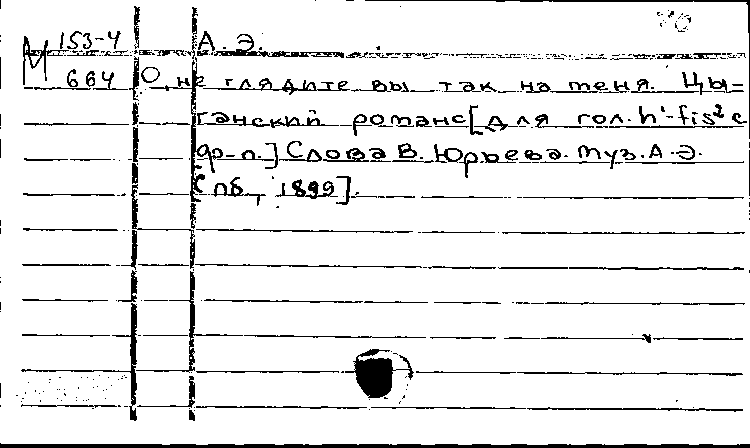 70
М 153-4 А. Э.
664 О, не глядите вы так на меня. Цы-
ганский романс [для гол. h¹-fis² с
ф-п.] Слова В. Юрьева. Муз. А. Э.
[Пб., 1899].